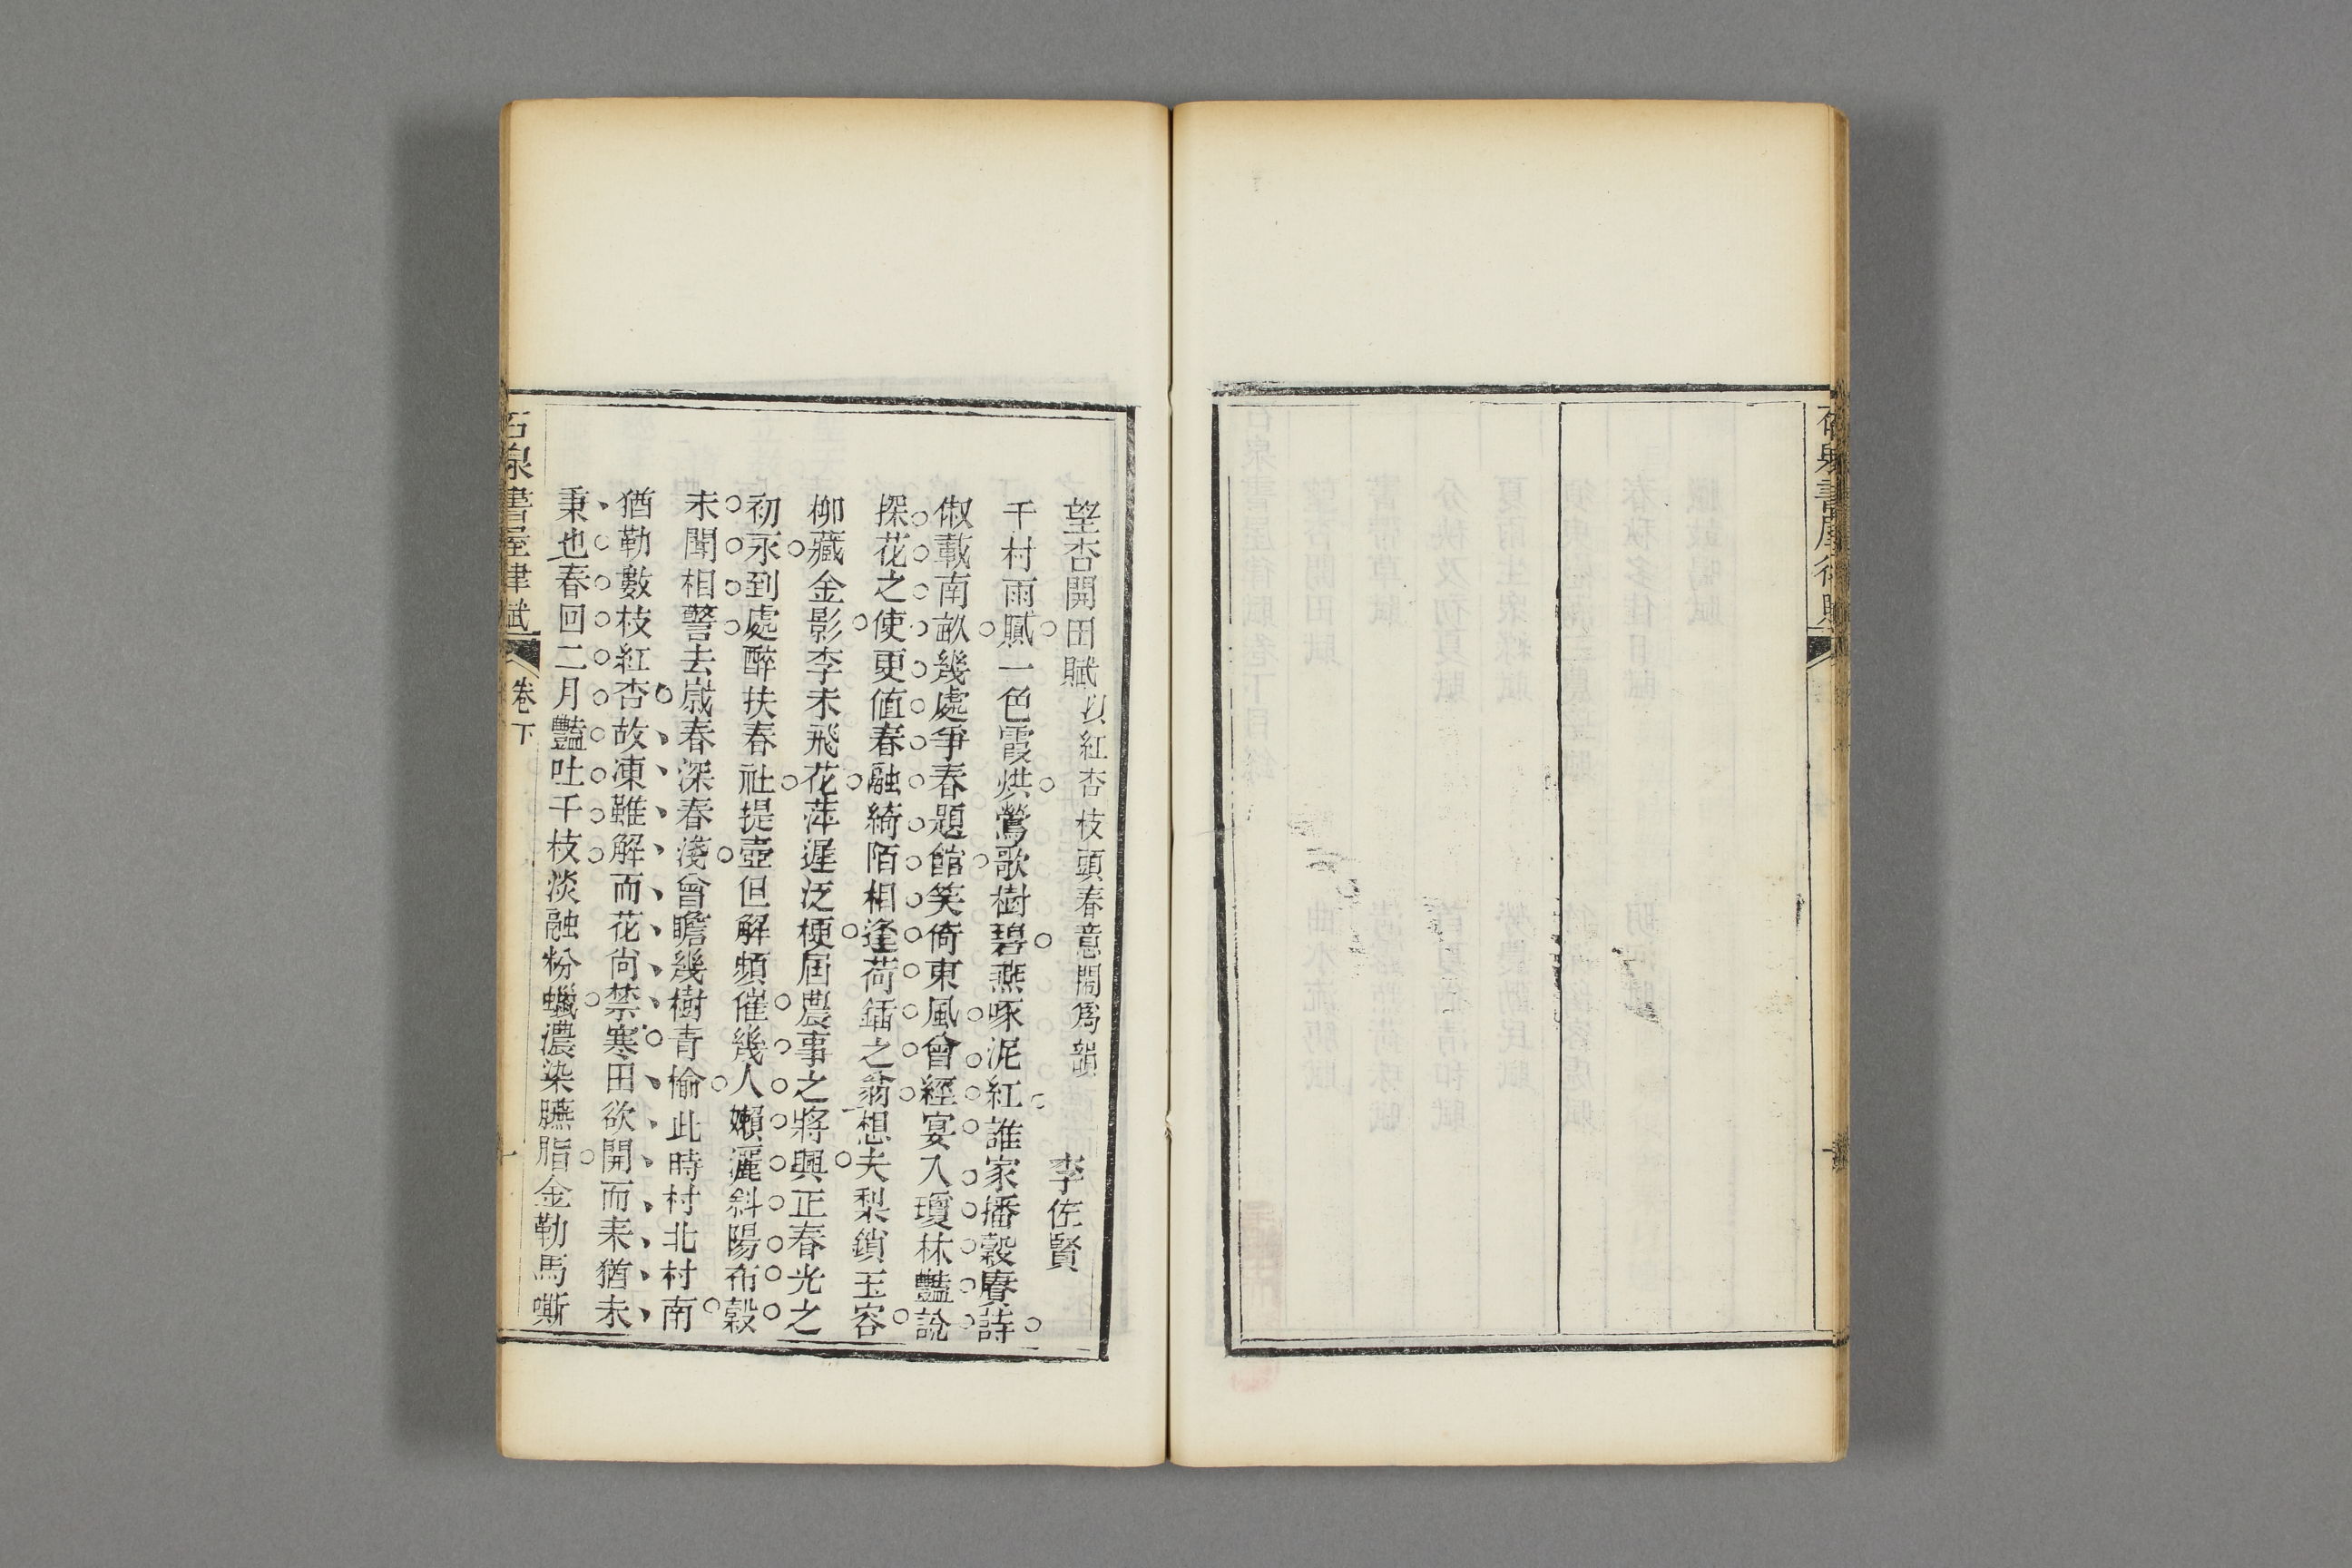 石泉書屋律賦
望杏開田賦以紅杏枝頭春意鬧爲韻 李佐賢
千村雨膩一色霞烘鶯歌樹碧燕啄泥紅誰家播穀賡詩
俶載南畝幾處爭春題館笑倚東風曾經宴入瓊林豔說
探花之使更值春融綺陌相逢荷鍤之翁想夫梨鎖玉容
柳藏金影李未飛花萍遲泛梗屆農事之將興正春光之
初永到處醉扶春社提壺但解頻催幾人嬾灑斜陽布穀
未聞相警去嵗春深春淺曾瞻幾樹青榆此時村北村南
猶勒數枝紅杏故凍難解而花尙禁寒田欲開而耒猶未
秉也春回二月豔吐千枝淡融粉蠟濃染臙脂金勒馬嘶
石泉書屋律賦 卷下 一